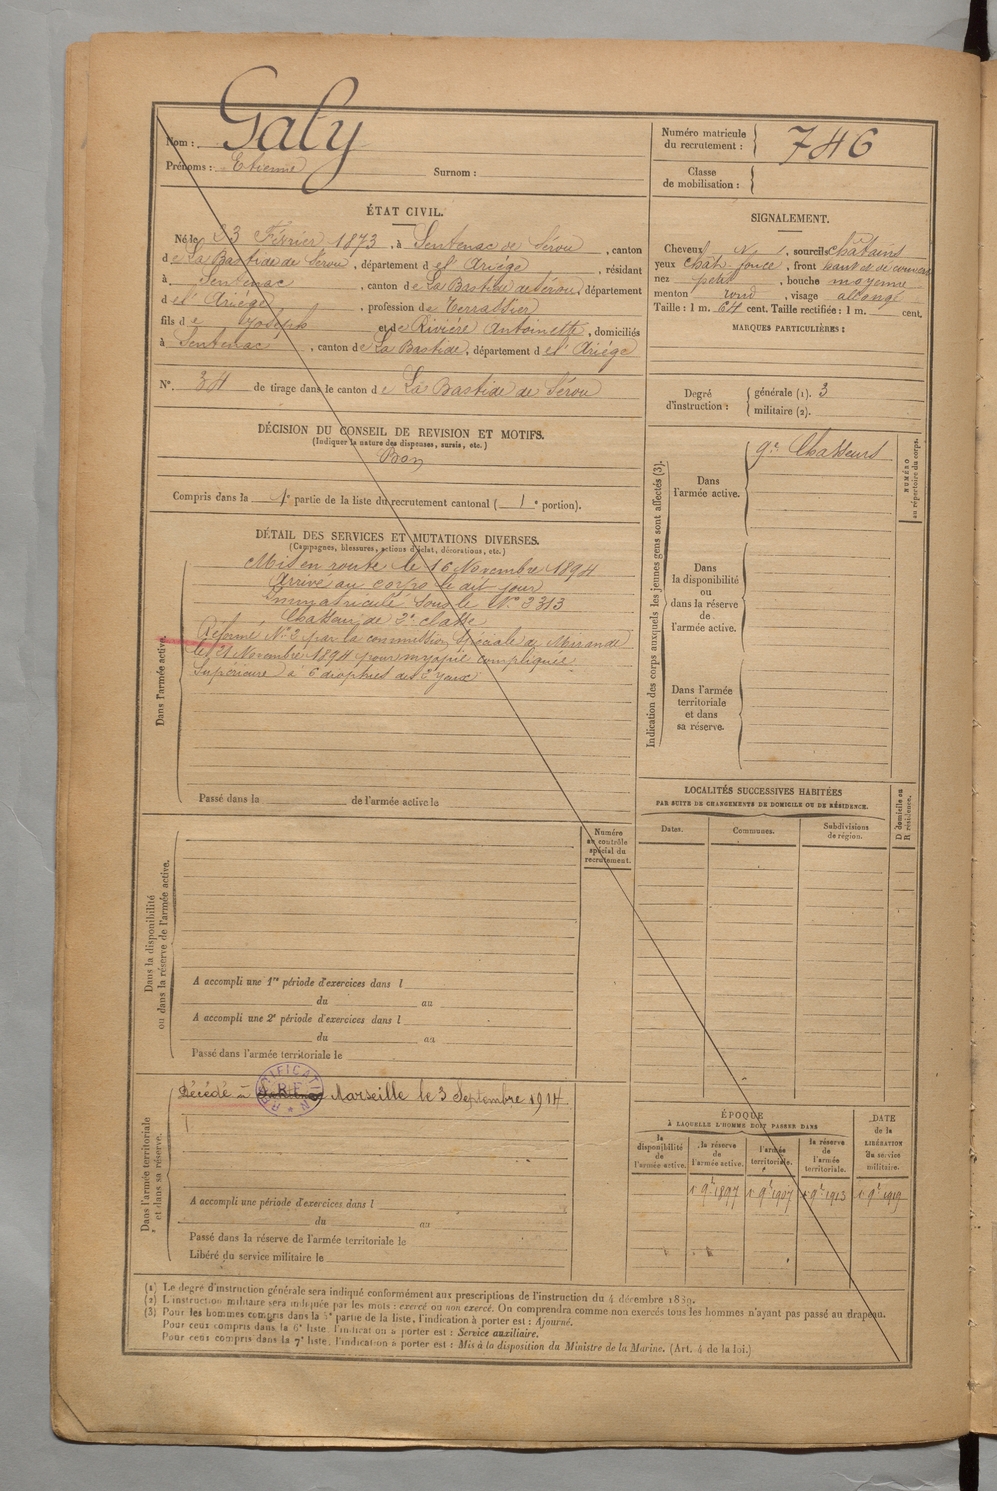 Nom : Galy
Prénoms : Etienne Surnom :
Numéro matricule du recrutement : 746
Classe de mobilisation :
ÉTAT CIVIL.
Né le 23 Février 1873, à Sentenac de Sérou, canton
de La Bastide de Sérou, département de l'Ariège, résidant
à Sentenac, canton de La Bastide de Sérou, département
de l'Ariège, profession de Terrassier
fils de Joseph et de Rivière Antoinette, domiciliés
à Sentenac, canton de La Bastide, département de l'Ariége
N° 34 de tirage dans le canton de La Bastide de Sérou
SIGNALEMENT.
Cheveux N, sourcils châtains
yeux chat. foncé, front haut et
nez petit, bouche moyenne
menton rond, visage allongé
Taille : 1 m. 64 cent. Taille rectifiée : 1 m. cent.
MARQUES PARTICULIÈRES :
Degré d'instruction : générale (1). 3
militaire (2).
DÉCISION DU CONSEIL DE REVISION ET MOTIFS.
(Indiquer la nature des dispenses, sursis, etc.)
Bon
Compris dans la 1e partie de la liste du recrutement cantonal (1e portion).
DÉTAIL DES SERVICES ET MUTATIONS DIVERSES.
(Campagnes, blessures, actions d'éclat, décorations, etc.)
Dans l'armée active.
Mis en route le 16 Novembre 1894
Arrivé au corps le dit jour
Immatriculé sous le N° 3313
Chasseur de 2e classe
Réformé N° 2 par la commission Spéciale de Mirande
le 21 Novembre 1894 pour myopie compliquée
Supérieure à 6 dioptries des 2 yeux
Passé dans la de l'armée active le
Indication des corps auxquels les jeunes gens sont affectés (3).
NUMÉRO au répertoire du corps.
Dans l'armée active.
9e Chasseurs
Dans la disponibilité ou dans la réserve de l'armée active.
Dans l'armée territoriale et dans sa réserve.
LOCALITÉS SUCCESSIVES HABITÉES
PAR SUITE DE CHANGEMENTS DE DOMICILE OU DE RÉSIDENCE.
D domicile ou R résidence.
Dates. Communes. Subdivisions de région.
Numéro au contrôle spécial du recrutement.
Dans la disponibilité ou dans la réserve de l'armée active.
A accompli une 1re période d'exercices dans l
du au
A accompli une 2e période d'exercices dans l
du au
Passé dans l'armée territoriale le
Dans l'armée territoriale et dans sa réserve.
Décédé à Marseille le 3 Septembre 1914
RECTIFICATION R.F.
A accompli une période d'exercices dans l
du au
Passé dans la réserve de l'armée territoriale le
Libéré du service militaire le
ÉPOQUE
À LAQUELLE L'HOMME DOIT PASSER DANS
la disponibilité de l'armée active.
la réserve de l'armée active.
l'armée territoriale.
la réserve de l'armée territoriale.
DATE de la LIBÉRATION du service militaire.
1 9e 1897 1 9e 1907 1 9e 1913 1 9e 1919
(1) Le degré d'instruction générale sera indiqué conformément aux prescriptions de l'instruction du 4 décembre 1889.
(2) L'instruction militaire sera indiquée par les mots : exercé ou non exercé. On comprendra comme non exercés tous les hommes n'ayant pas passé au drapeau.
(3) Pour les hommes compris dans la 5e partie de la liste, l'indication à porter est : Ajourné.
Pour ceux compris dans la 6e liste, l'indication à porter est : Service auxiliaire.
Pour ceux compris dans la 7e liste, l'indication à porter est : Mis à la disposition du Ministre de la Marine. (Art. 4 de la loi.)